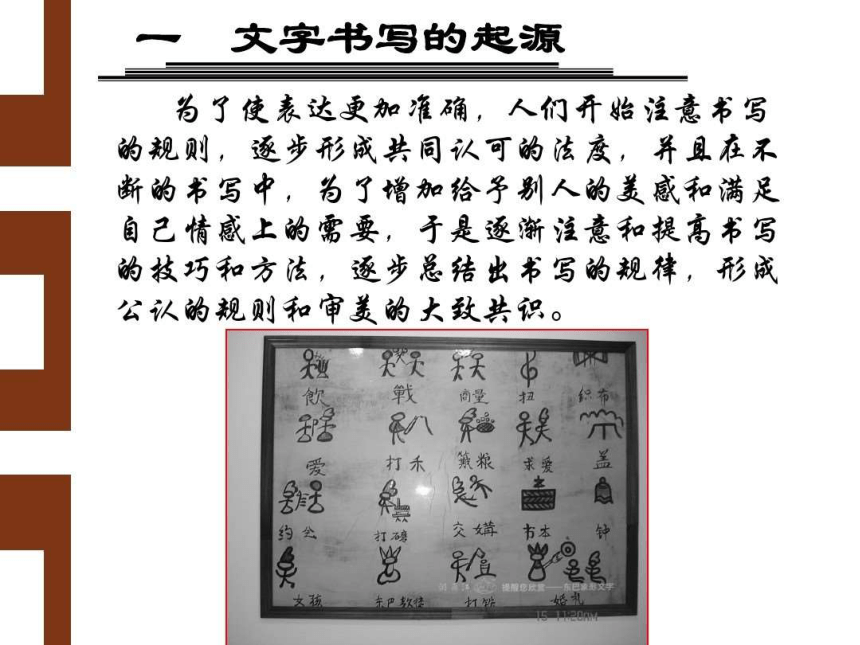 一 文字书写的起源
为了使表达更加准确，人们开始注意书写
的规则，逐步形成共同认可的法度，并且在不
断的书写中，为了增加给予别人的美感和满足
自己情感上的需要，于是逐渐注意和提高书写
的技巧和方法，逐步总结出书写的规律，形成
公认的规则和审美的大致共识。
飲 戰 商量 扭 织布
爱 打禾 粮 求爱 盖
打 交媾 书本 钟
女孩 东巴 打 婚礼
东巴象形文字